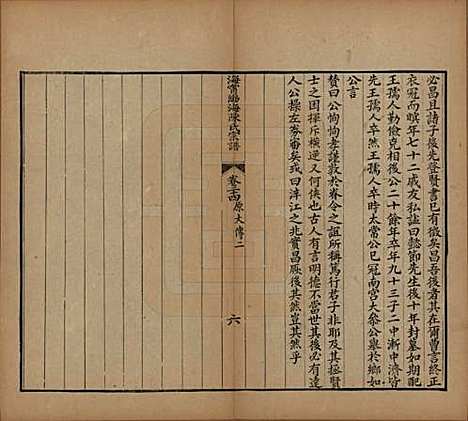 必昌且諸子後先登賢書已有徵矣昌吾後者其在爾曹言終正
衣冠而暝年七十二戚友私謚曰懿節先生後十年封墓如期配
王孺人勤儉克相公二十餘年卒年九十三子二中漸中濟皆
先王孺人卒然王孺人卒時太常公已冠南宮大參公舉於鄉如
公言
贊曰公恂恂孝謹敦於眷令之誼所稱篤行君子非耶及其拯賢
士之揮斥橫逆又何俠也古人有言明德不當世其後必有達
人公操左券審矣或曰涬江之兆實昌厥後其然其然乎
海寧渤海陳氏宗譜
卷十四 原大傳二
六